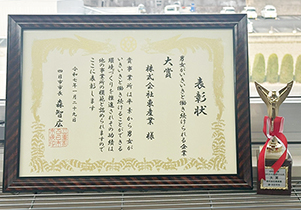 表彰状
男女がいきいきと働き続けられる企業
大賞
株式会社東産業 様
貴事業所は平素から男女が
いきいきと働き続けることができる
環境づくりを推進しその功績は
他の事業所の模範と認められますので
ここに表彰します
令和七年一月二十九日
四日市市長 森智広
大賞